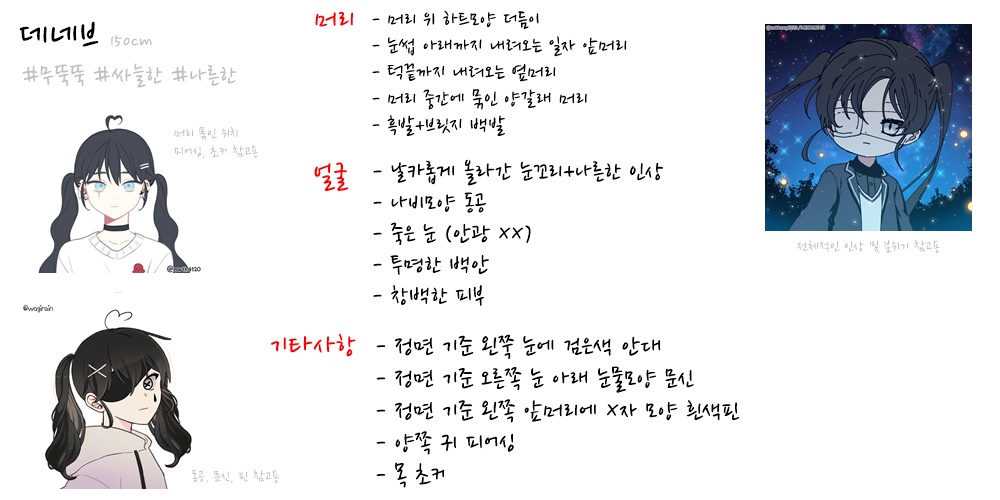 데네브 150cm
#무뚝뚝 #싸늘한 #나른한
머리 묶인 위치
피어싱, 초커 참고용
@wagirain
동공, 문신, 핀 참고용
머리
- 머리 위 하트모양 더듬이
- 눈썹 아래까지 내려오는 일자 앞머리
- 턱끝까지 내려오는 옆머리
- 머리 중간에 묶인 양갈래 머리
- 흑발+브릿지 백발
얼굴
- 날카롭게 올라간 눈꼬리+나른한 인상
- 나비모양 동공
- 죽은 눈 (안광 XX)
- 투명한 백안
- 창백한 피부
기타사항
- 정면 기준 왼쪽 눈에 검은색 안대
- 정면 기준 오른쪽 눈 아래 눈물모양 문신
- 정면 기준 왼쪽 앞머리에 X자 모양 흰색핀
- 양쪽 귀 피어싱
- 목 초커
전체적인 인상 및 분위기 참고용